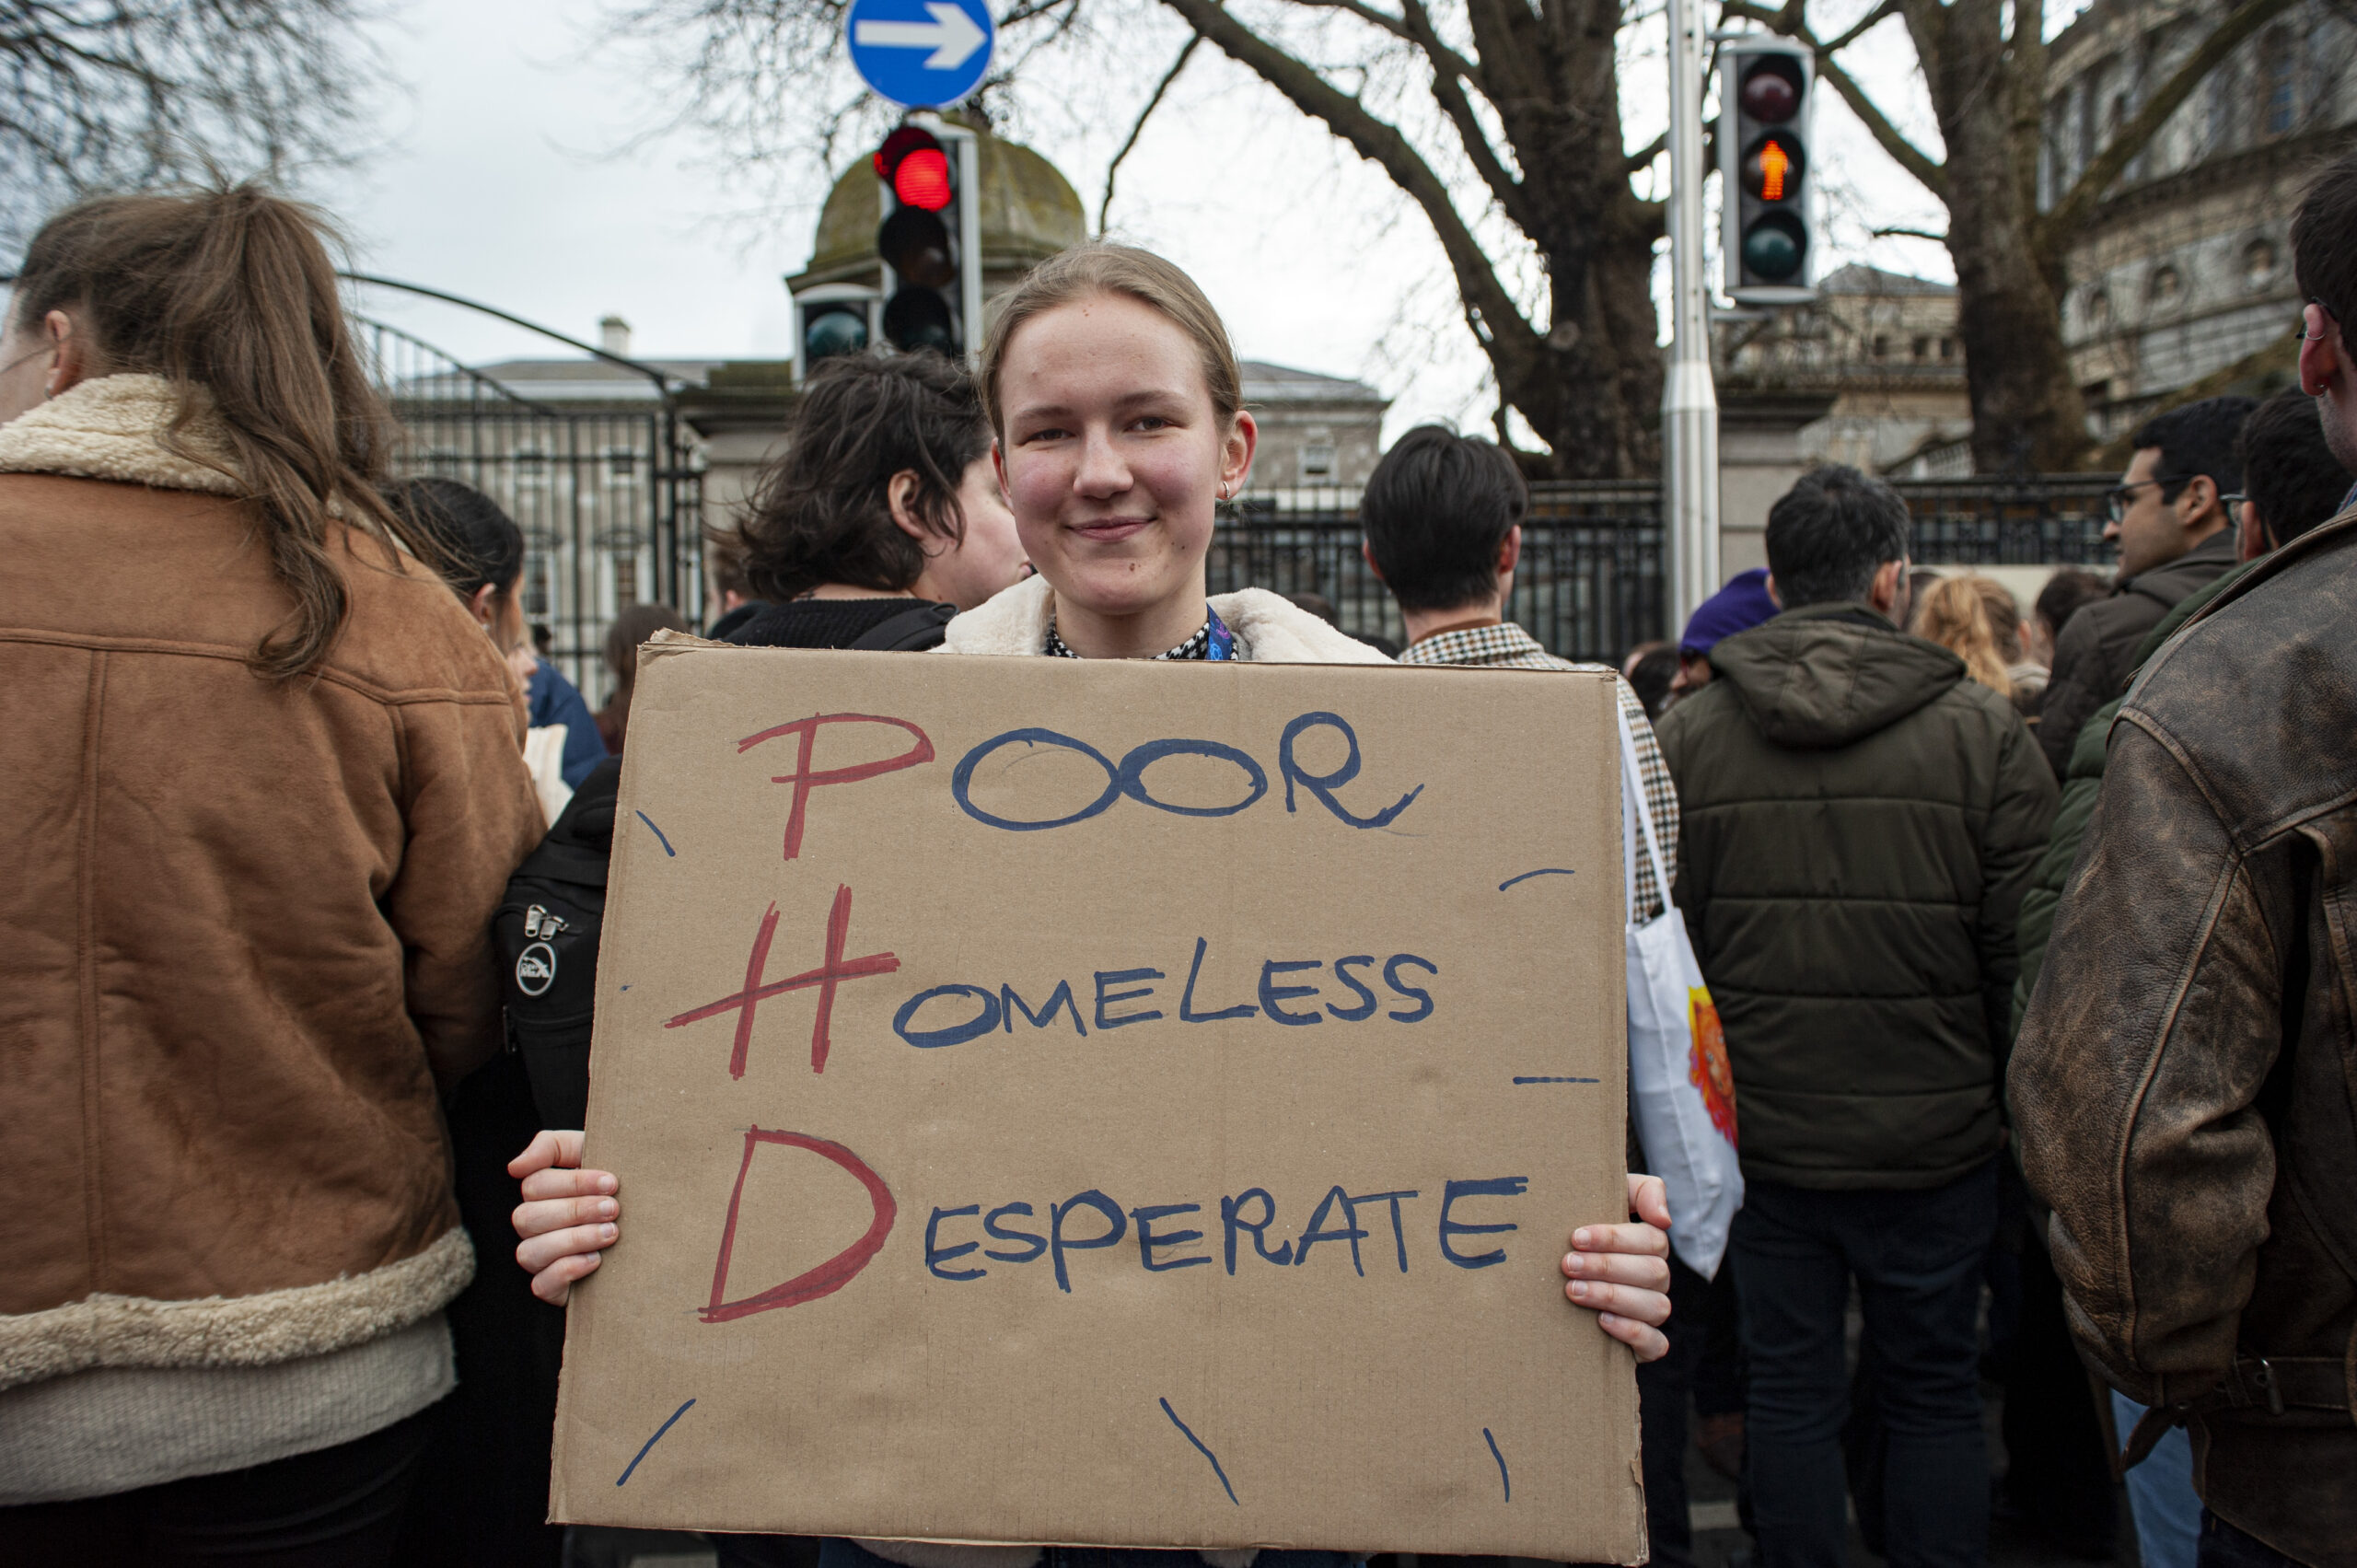 POOR
HOMELESS
DESPERATE